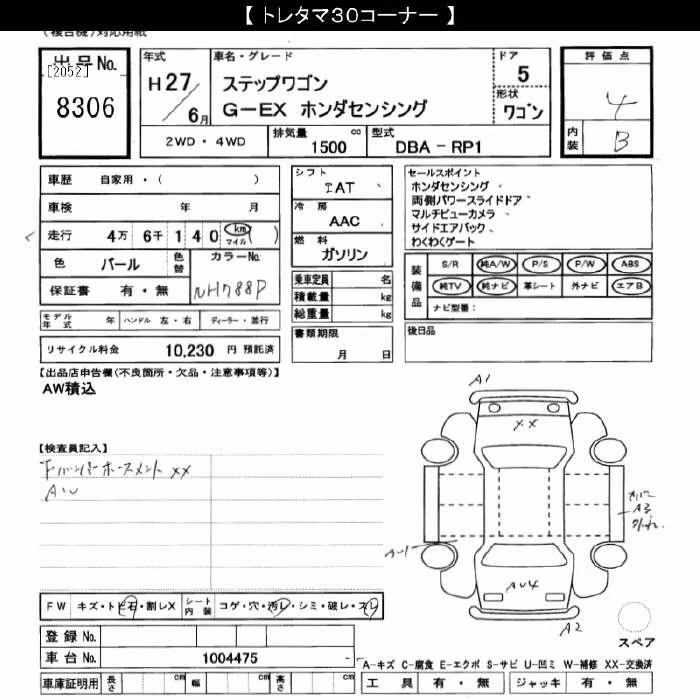 【 トレタマ30コーナー 】
(複合機)対応用紙
出品No.
[2052]
8306
年式
H27/6月
車名・グレード
ステップワゴン
G-EX ホンダセンシング
ドア
5
形状
ワゴン
2WD・4WD
排気量 1500 cc
型式 DBA-RP1
評価点
4
内装 B
車歴 自家用・( )
車検 年 月
走行 4万 6千 1 4 0 km マイル ( )
色 パール 色替 カラーNo.
保証書 有・無 NH788P
モデル年式 年 ハンドル 左・右 ディーラー・並行
リサイクル料金 10,230 円 預託済
シフト
IAT
冷房
AAC
燃料
ガソリン
乗車定員 名
積載量 kg
総重量 kg
書類期限
月 日
セールスポイント
ホンダセンシング
両側パワースライドドア
マルチビューカメラ
サイドエアバック
わくわくゲート
装備品
S/R 純A/W P/S P/W ABS
純TV 純ナビ 革シート 外ナビ エアB
ナビ型番:
後日品
【出品店申告欄(不良箇所・欠品・注意事項等)】
AW積込
【検査員記入】
XX
AW
A1
XX
A3
AW4
A2
スペア
FW キズ・トビ石・割レX シート内装 コゲ・穴・汚レ・シミ・破レ・スレ
登録No.
車台No. 1004475
車庫証明用 長さ cm 幅 cm 高さ cm
A-キズ C-腐食 E-エクボ S-サビ U-凹ミ W-補修 XX-交換済
工具 有・無 ジャッキ 有・無